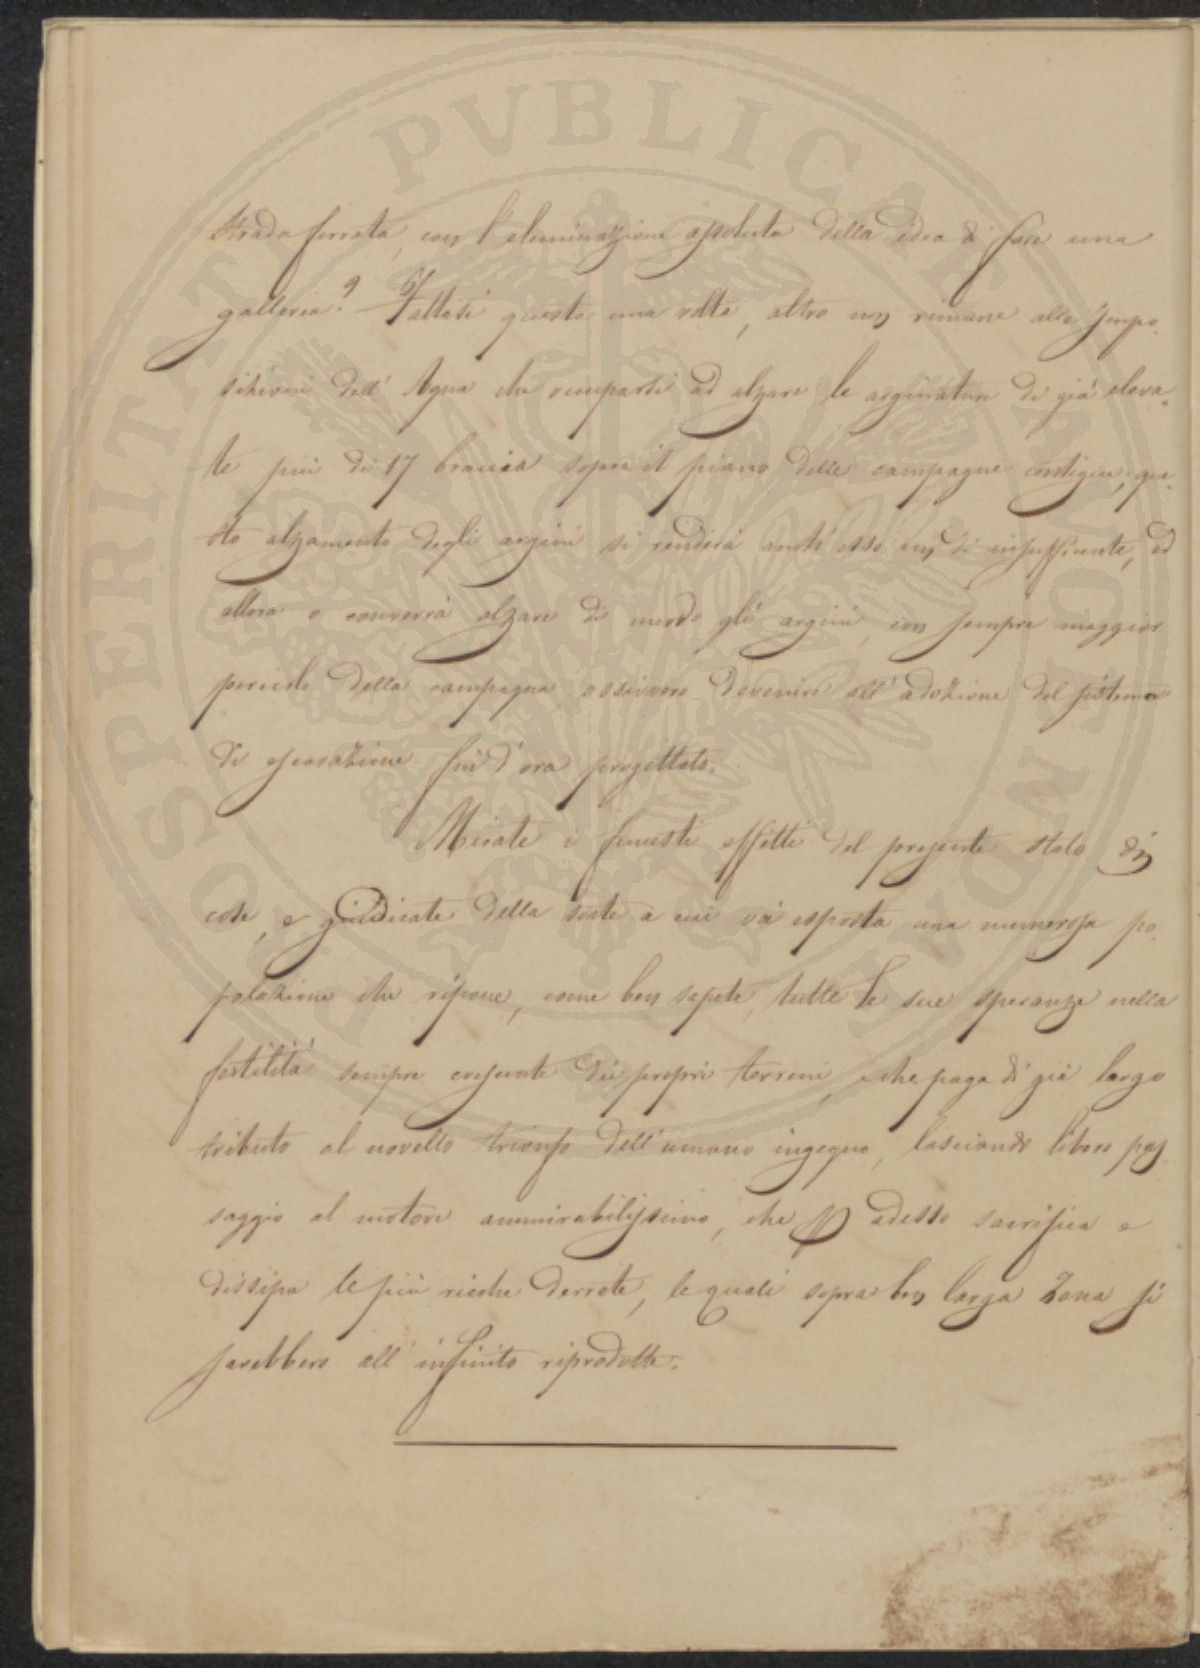 strada ferrata, con l'eleminazione assoluta della idea di fare una
galleria? Fattasi questa una volta, altro non rimane alle Impo-
sizioni dell' Agna che occuparsi ad alzare le arginature di già eleva-
te più di 17 braccia sopra il piano delle campagne contigue; que-
sto alzamento degli argini si renderà anch'esso un dì insufficiente, ed
allora o converrà alzare di nuovo gli argini, con sempre maggior
pericolo della campagna, ossivvero devenire all'adozione del sistema
di escavazione fin d'ora progettato.
Mirate i funesti effetti del presente stato di
cose, e giudicate della sorte a cui và esposta una numerosa po-
polazione che ripone, come ben sapete, tutte le sue speranze nella
fertilità sempre crescente dei propri terreni, e che paga di già largo
tributo al novello trionfo dell'umano ingegno, lasciando libero pas-
saggio al motore ammirabilissimo, che adesso sacrifica e
dissipa le più ricche derrate, le quali sopra ben larga Zona si
sarebbero all'infinito riprodotte.
PROSPERITATI PVBLICAE